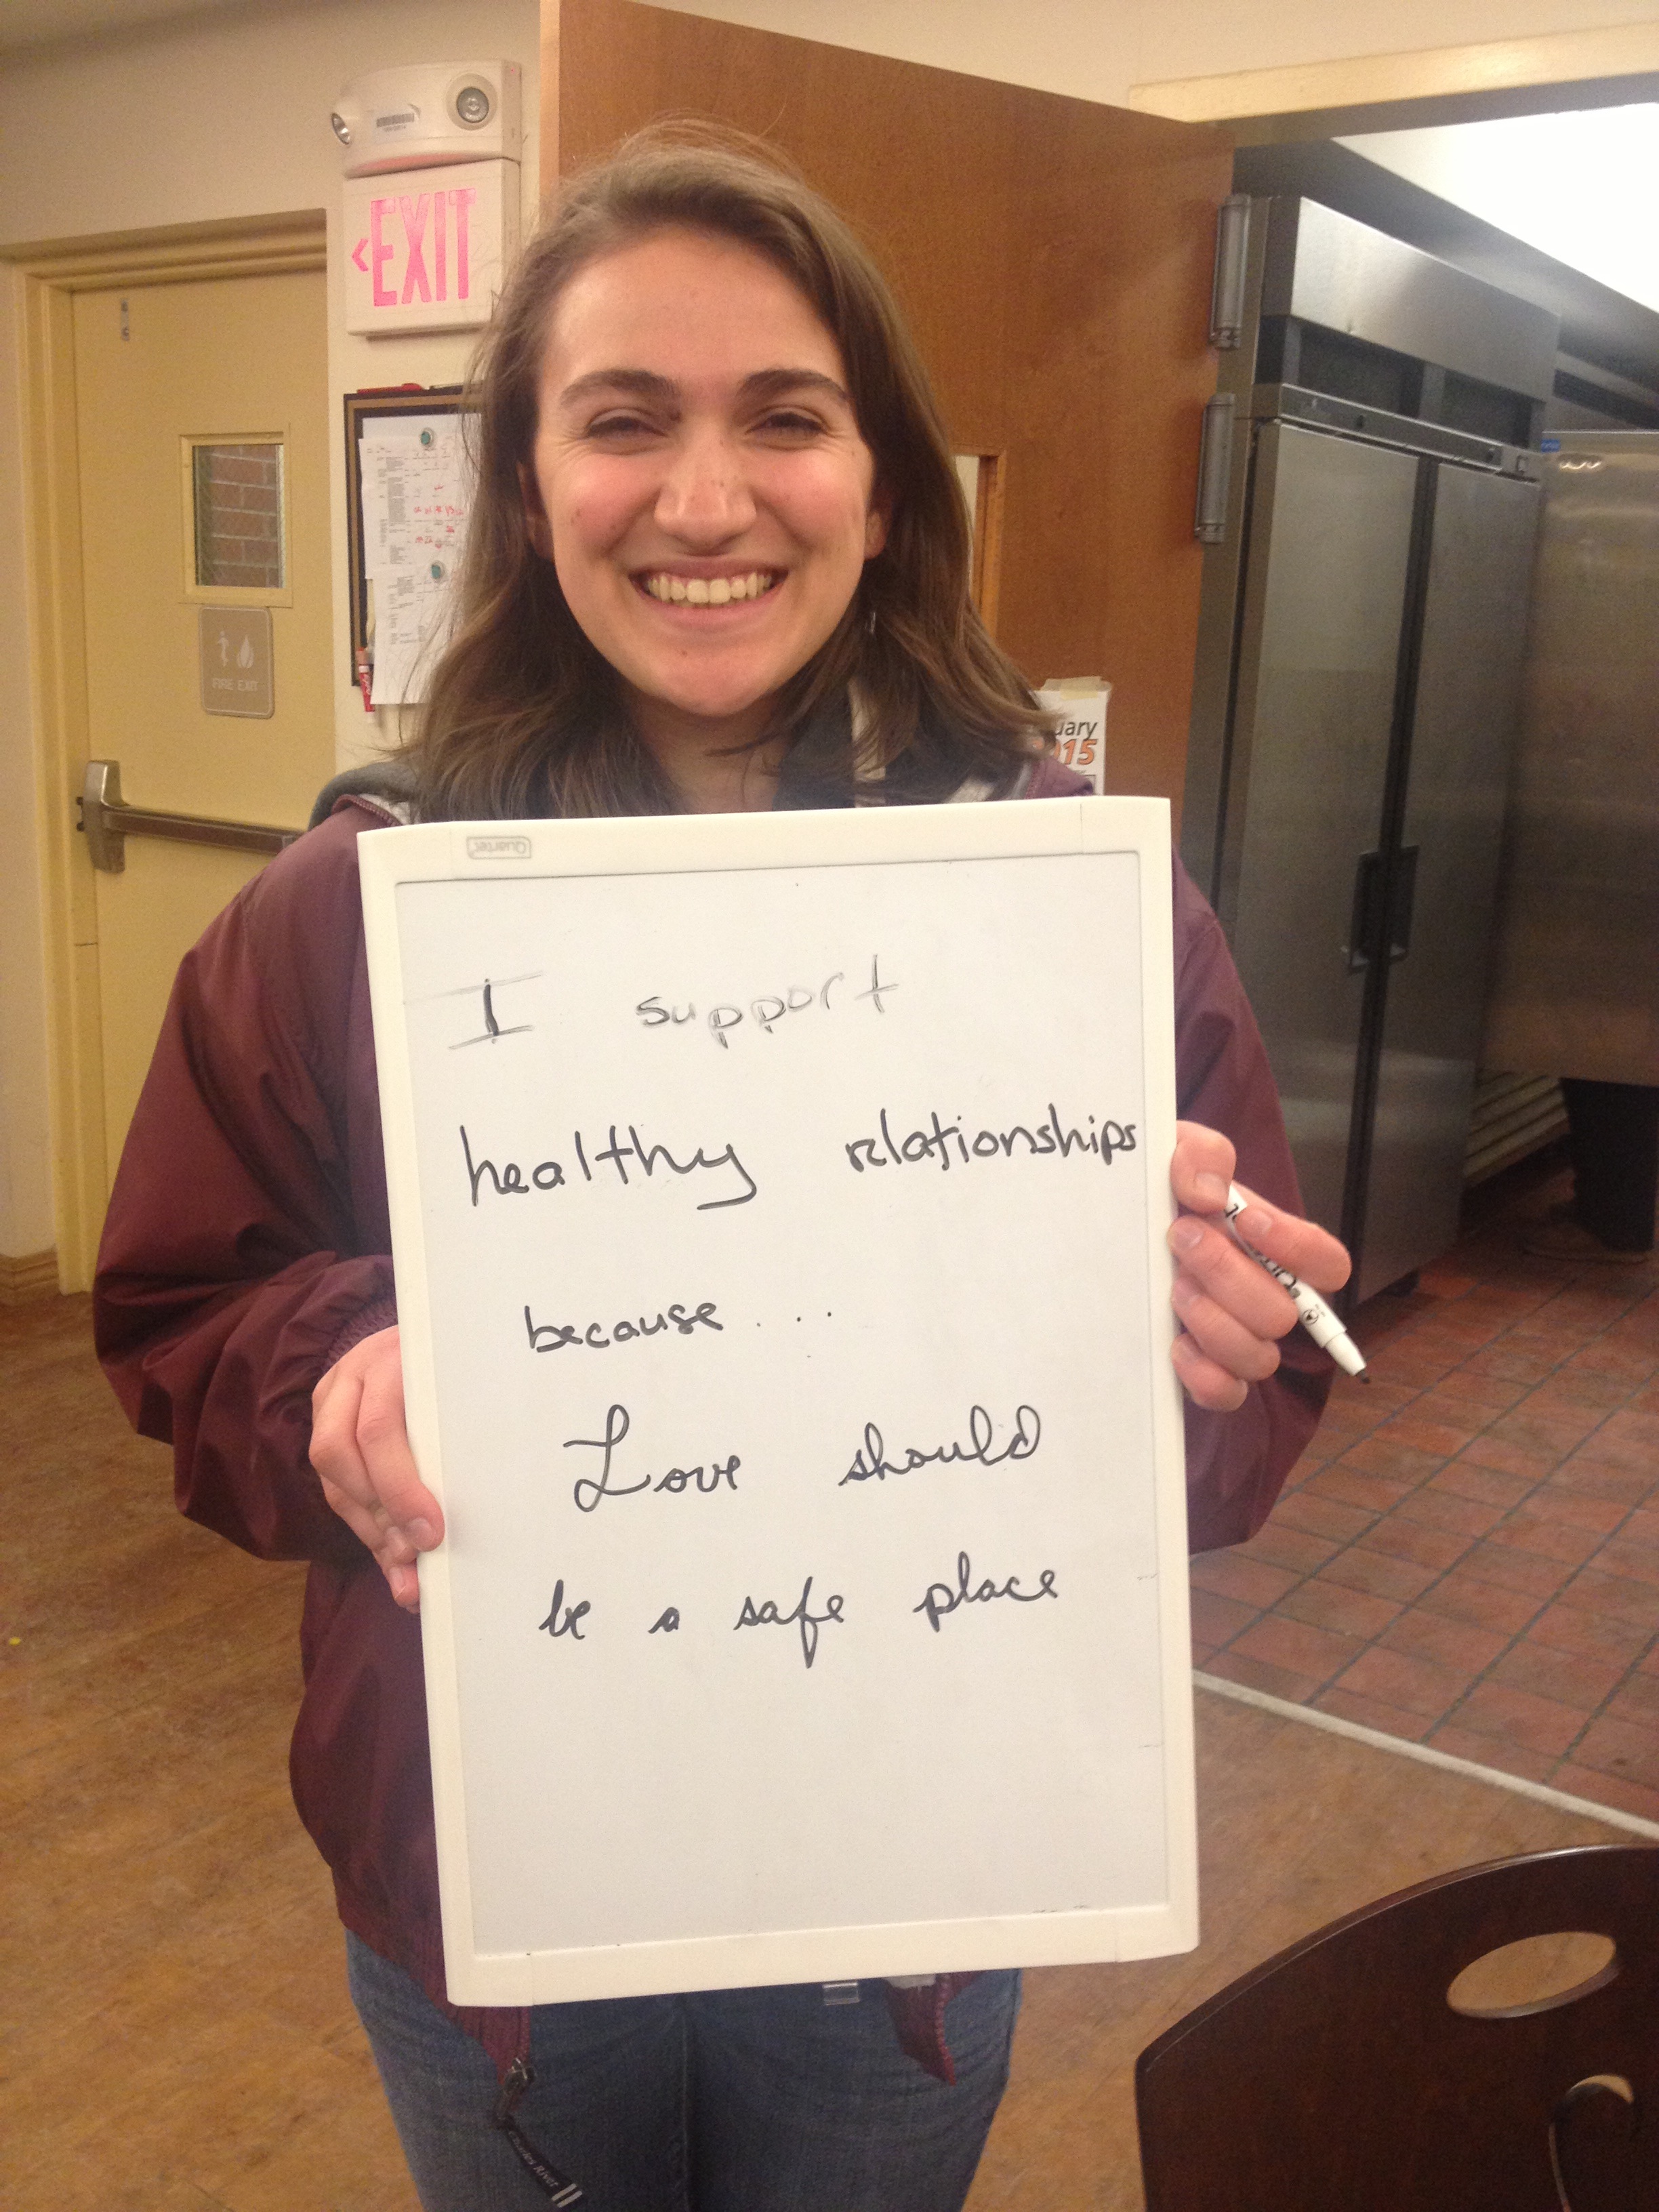 EXIT
FIRE EXIT
uary
015
Quartet
I support
healthy relationships
because...
Love should
be a safe place
Charles River